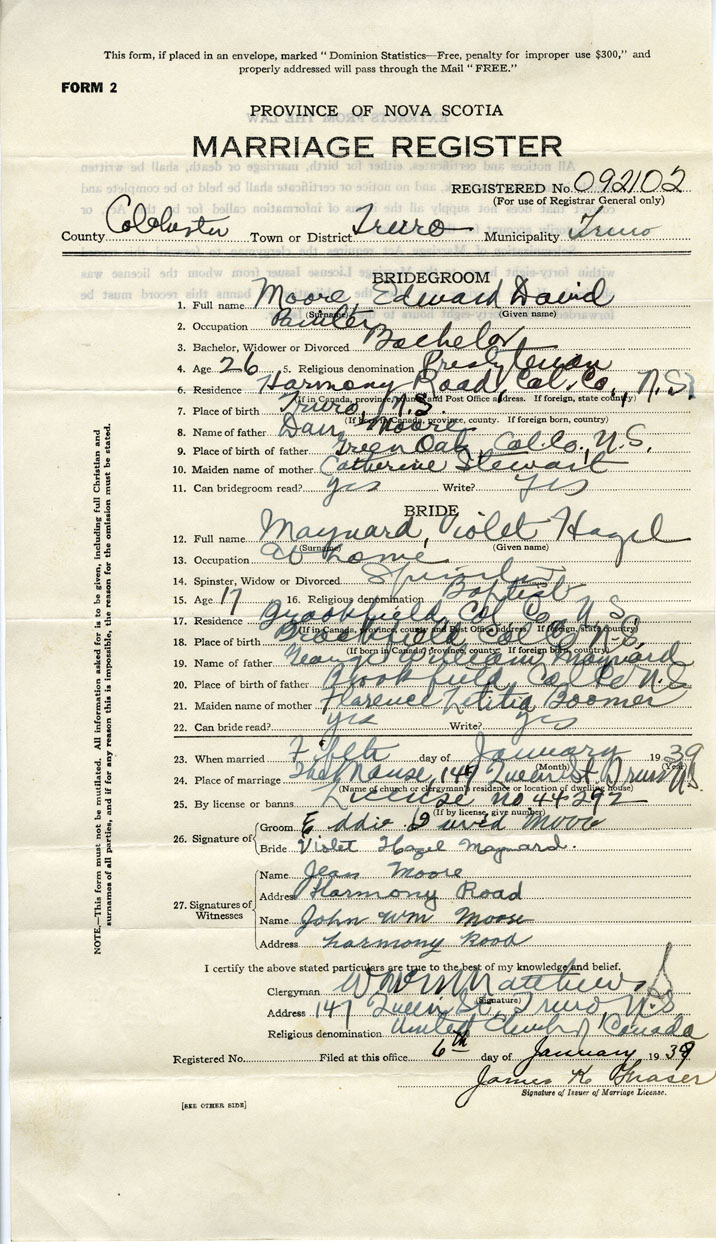 This form, if placed in an envelope, marked "Dominion Statistics—Free, penalty for improper use $300," and
properly addressed will pass through the Mail "FREE."
FORM 2
PROVINCE OF NOVA SCOTIA
MARRIAGE REGISTER
REGISTERED No. 092102
(For use of Registrar General only)
County Colchester Town or District Truro Municipality Truro
BRIDEGROOM
1. Full name Moore, Edward David
(Surname) (Given name)
2. Occupation Painter
3. Bachelor, Widower or Divorced Bachelor
4. Age 26 5. Religious denomination Presbyterian
6. Residence Harmony Road, Col. Co., N.S.
(If in Canada, province, county and Post Office address. If foreign, state county)
7. Place of birth Truro, N.S.
(If born in Canada, province, county. If foreign born, country)
8. Name of father Dan Moore
9. Place of birth of father Green Oak, Col. Co. N.S.
10. Maiden name of mother Catherine Stewart
11. Can bridegroom read? yes Write? Yes
BRIDE
12. Full name Maynard, Violet Hazel
(Surname) (Given name)
13. Occupation At home
14. Spinster, Widow or Divorced Spinster
15. Age 17 16. Religious denomination Baptist
17. Residence Brookfield Col. Co. N.S.
(If in Canada, province, county and Post Office address. If foreign, state country)
18. Place of birth Brookfield Col. Co. N.S.
(If born in Canada, province, county. If foreign born, country)
19. Name of father George William Maynard
20. Place of birth of father Brookfield, Col Co N.S
21. Maiden name of mother Florence Letitia Boomer
22. Can bride read? yes Write? yes
23. When married Fifth day of January 1939
(Month) (Year)
24. Place of marriage The Manse, 147 Queen St Truro N.S.
(Name of church or clergyman's residence or location of dwelling house)
25. By license or banns License no 44292
(If by license, give number)
26. Signature of Groom Eddie David Moore
Bride Violet Hazel Maynard.
27. Signatures of Witnesses
Name Jean Moore
Address Harmony Road
Name John Wm Moore
Address harmony Road
I certify the above stated particulars are true to the best of my knowledge and belief.
Clergyman Matthews
(Signature)
Address 147 Queen St, Truro N.S
Religious denomination United Church of Canada
Registered No. Filed at this office 6th day of January 1939
James K Fraser
Signature of Issuer of Marriage License.
[SEE OTHER SIDE]
NOTE.—This form must not be mutilated. All information asked for is to be given, including full Christian and
surnames of all parties, and if for any reason this is impossible, the reason for the omission must be stated.